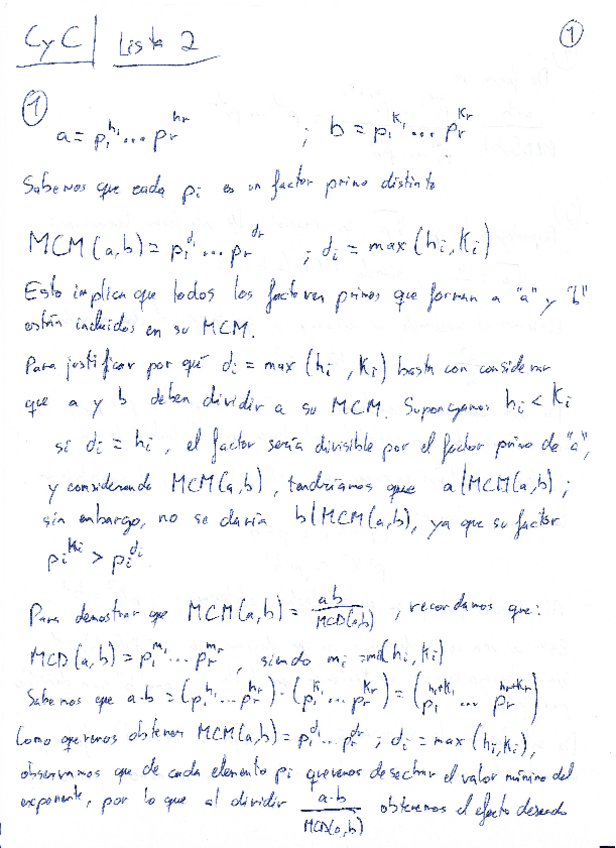 CyC | Lista 2
①
① a = p₁^h₁ ... pᵣ^hᵣ ; b = p₁^k₁ ... pᵣ^kᵣ
Sabemos que cada pᵢ es un factor primo distinto
MCM(a,b) = p₁^d₁ ... pᵣ^dᵣ ; dᵢ = max(hᵢ, kᵢ)
Esto implica que todos los factores primos que forman a "a" y "b"
están incluidos en su MCM.
Para justificar por qué dᵢ = max(hᵢ, kᵢ) basta con considerar
que a y b deben dividir a su MCM. Supongamos hᵢ < kᵢ
si dᵢ = hᵢ, el factor sería divisible por el factor primo de "a",
y considerando MCM(a,b), tendríamos que a|MCM(a,b);
sin embargo, no se daría b|MCM(a,b), ya que su factor
pᵢ^kᵢ > pᵢ^dᵢ
Para demostrar que MCM(a,b) = ab/MCD(a,b), recordamos que:
MCD(a,b) = p₁^m₁ ... pᵣ^mᵣ, siendo mᵢ = min(hᵢ, kᵢ)
Sabemos que a·b = (p₁^h₁ ... pᵣ^hᵣ)·(p₁^k₁ ... pᵣ^kᵣ) = (p₁^h₁+k₁ ... pᵣ^hᵣ+kᵣ)
Como queremos obtener MCM(a,b) = p₁^d₁ ... pᵣ^dᵣ ; dᵢ = max(hᵢ, kᵢ),
observamos que de cada elemento pᵢ queremos desechar el valor mínimo del
exponente, por lo que al dividir a·b/MCD(a,b) obtenemos el efecto deseado